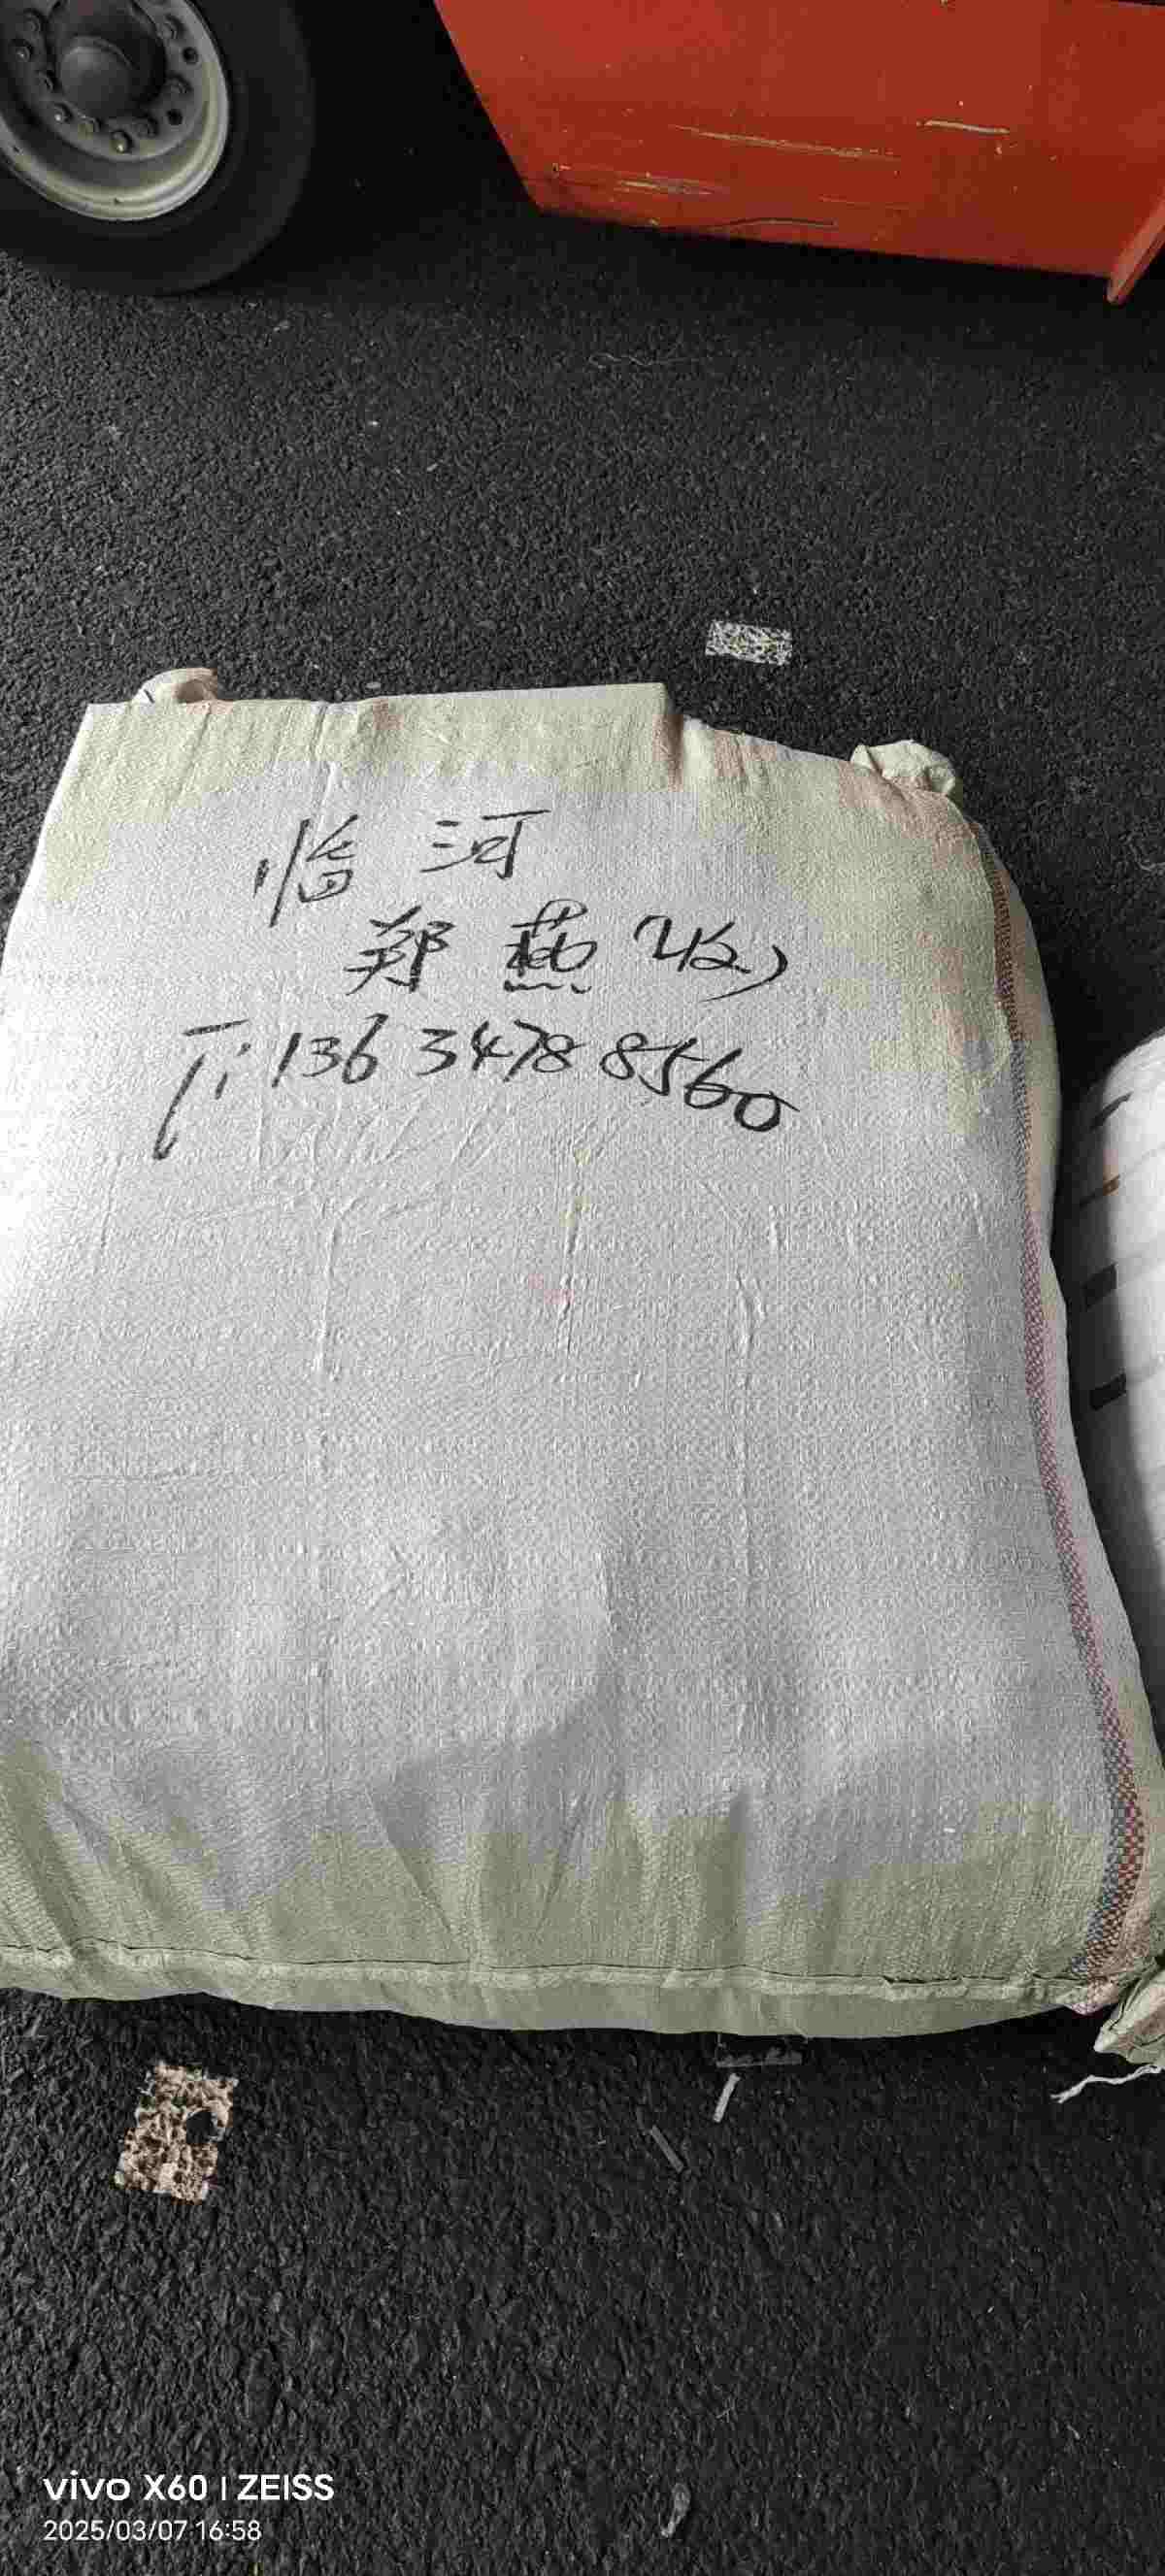 临河
郑燕(收)
T: 136 3478 8560
vivo X60 | ZEISS
2025/03/07 16:58